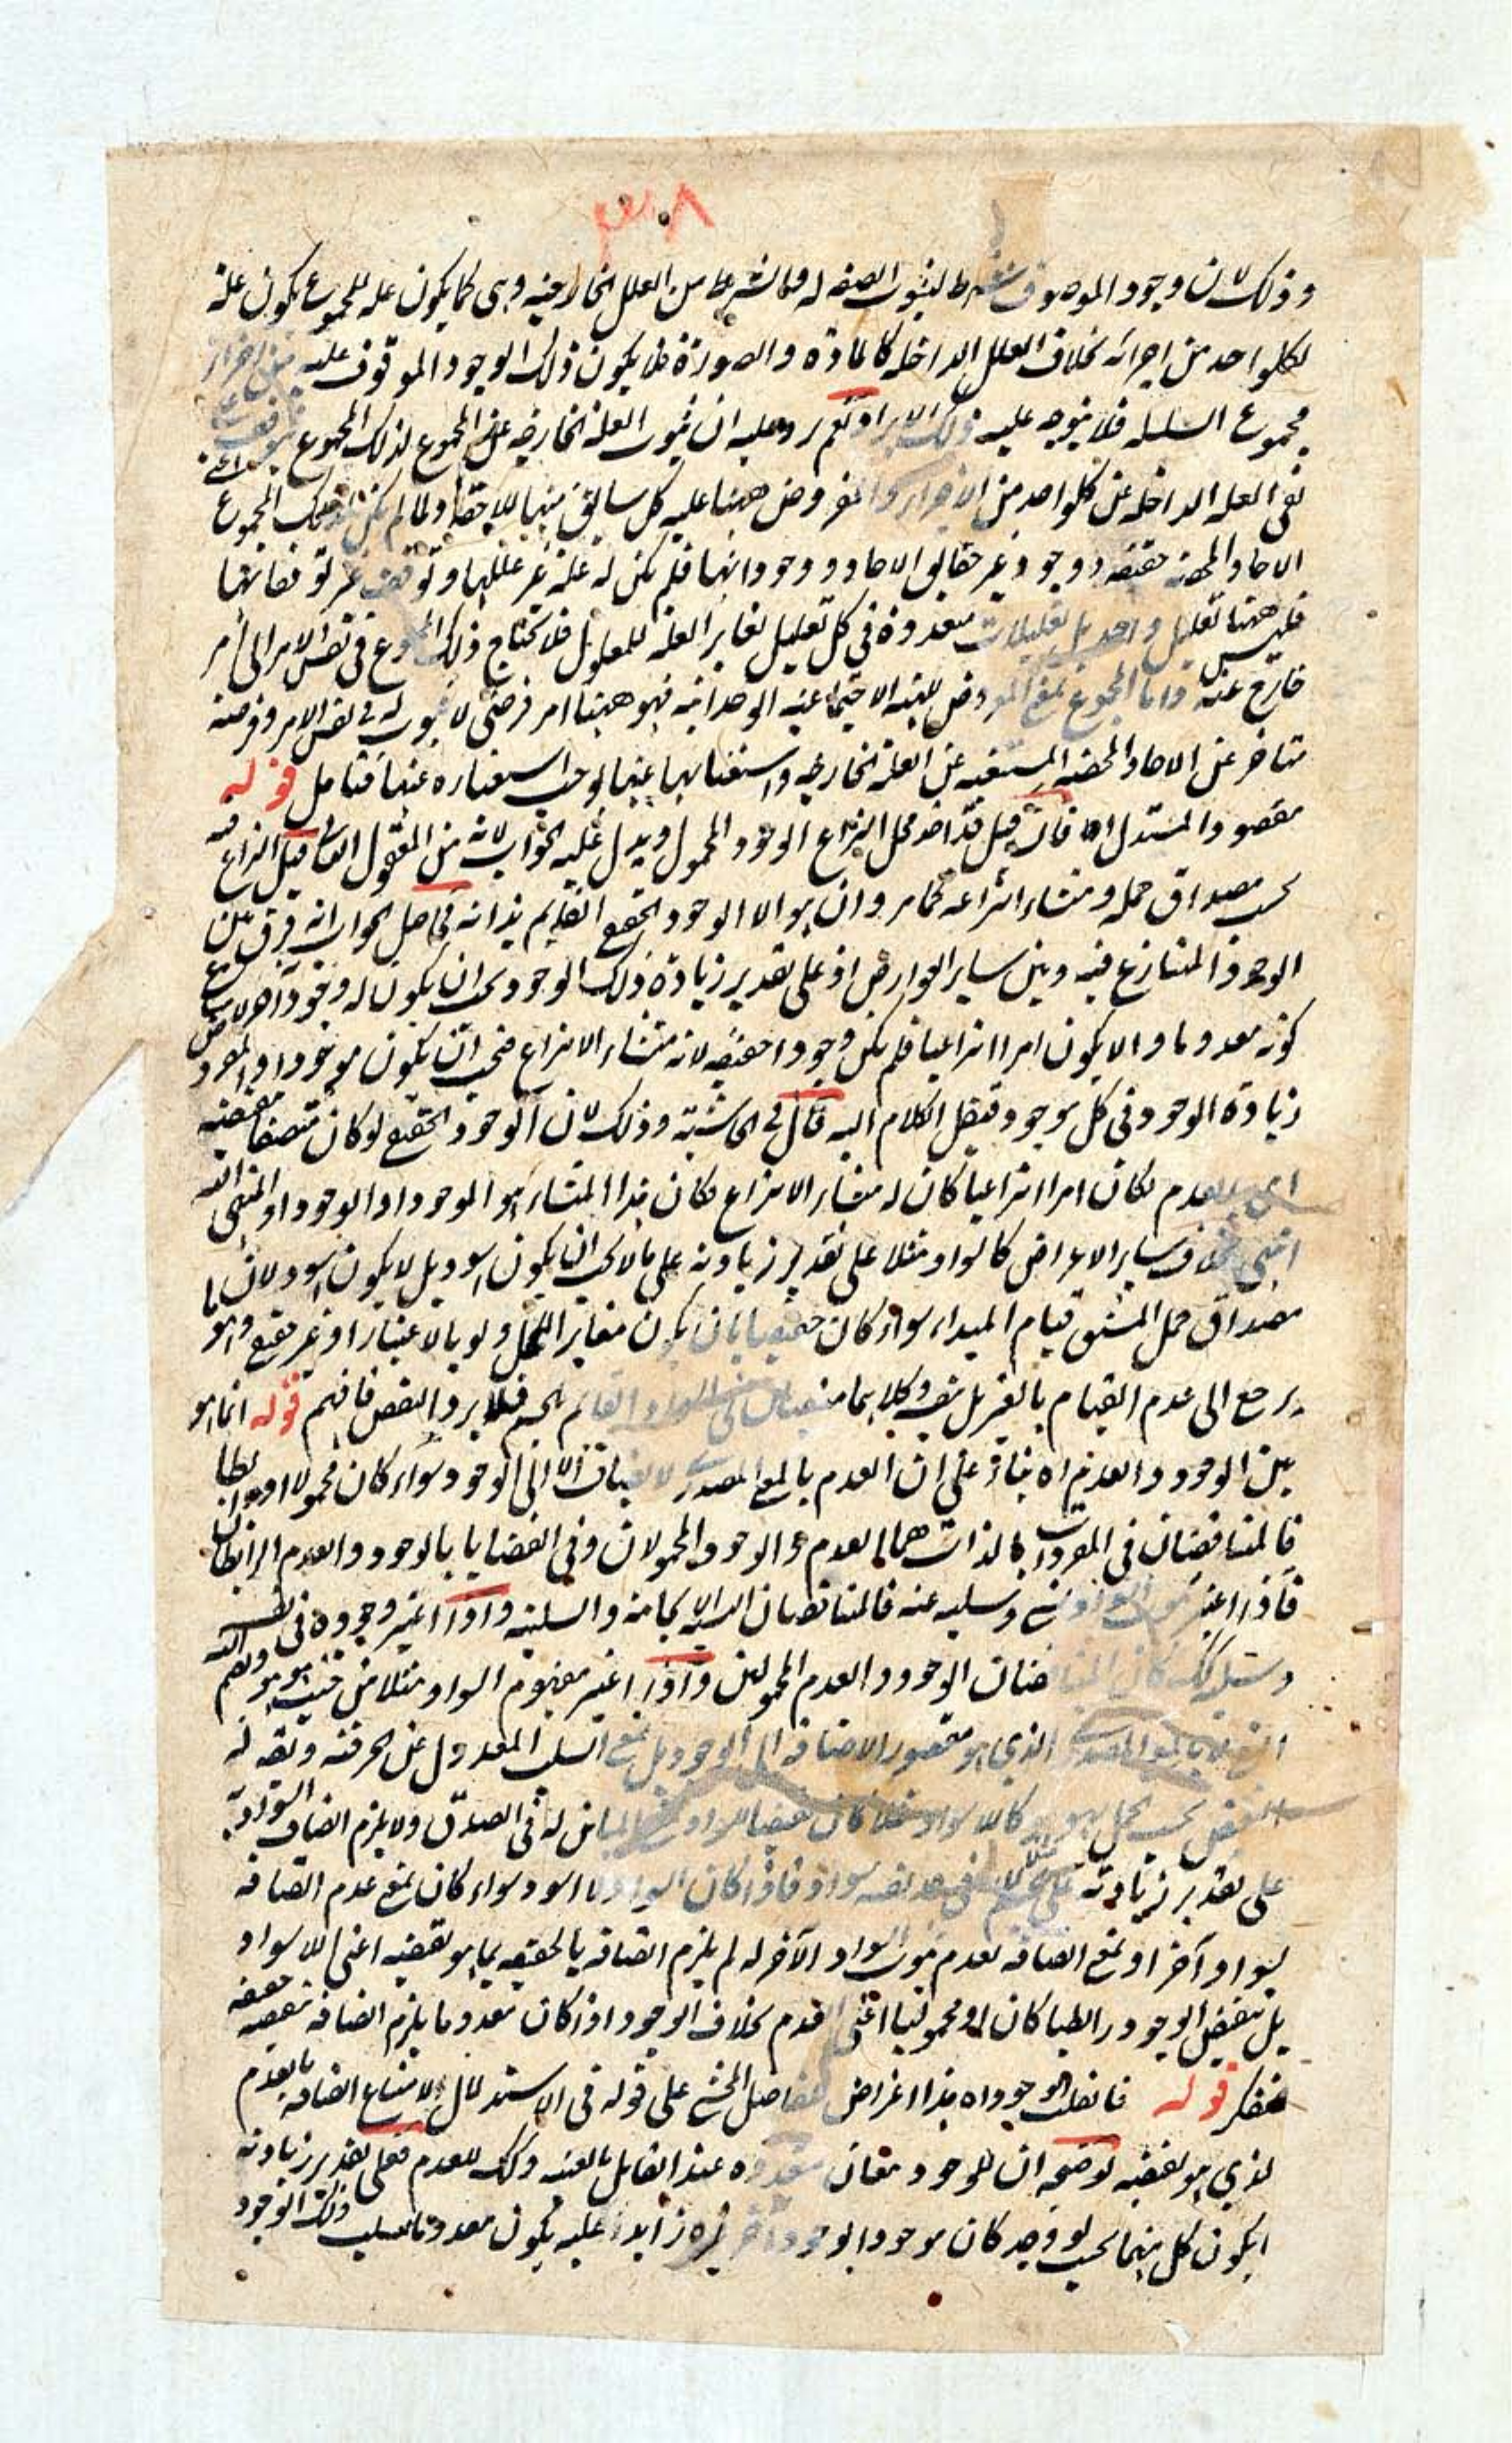 ٣٠٨
وذلك لان وجود الموصوف شرط لثبوت الصفه له والشرط من العلل الخارجيه وهى كما يكون عله للمجموع يكون علة
لكلواحد من اجزائه بخلاف العلل الداخله كالمادة والصورة فلا يكون ذلك الوجود الموقوف عليه من اجزاء
مجموع السلسله فلا يتوجه عليه ذلك الايراد نعم يرد عليه ان ثبوت العلة الخارجيه عن المجموع لذلك المجموع
نفى العله الداخله عن كلواحد من الاجزاء والمفروض ههنا عليه كل سابق منها للاحقه ولما لم يكن لذلك المجموع
الاحاد المحضه حقيقه ووجود غير حقايق الاحاد ووجوداتها فلم يكن له علة غير عللها وتوقف غير توقفاتها
فليس ههنا تعليل واحد بل تعليلات متعددة فى كل تعليل تغاير العله للمعلول فلا يحتاج ذلك المجموع فى نفس الامر الى امر
خارج عنه واما المجموع بمعنى المعروض للهيئه الاجتماعيه الوحدانيه فهو ههنا امر فرضى لا ثبوت له فى نفس الامر وفرضه
متاخر عن الاحاد المحضه المستغنيه عن العلة الخارجيه واستغنائها عنها يوجب استغناءه عنها فتامل قوله
مقصود المستدل اه فان قيل قد اخذ محل النزاع الوجود المحمول ويدل عليه الجواب لانه من المقبول قيل النزاع فيه
بحسب مصداق حمله ومنشاء انتزاعه كما مر وان هو الا الوجود الحقيقى القايم بذاته فحاصل الجواب انه فرق بين
الوجود المتنازع فيه وبين ساير العوارض اذ على تقدير زيادة ذلك الوجود يجب ان يكون له وجود آخر لامتناع
كونه معدوما والا يكون امرا انتزاعيا فلم يكن وجودا حقيقيه لانه منشاء الانتزاع فيجب ان يكون موجودا والمفروض
زيادة الوجود فى كل موجود فينقل الكلام اليه قال فى الحاشيه وذلك لان الوجود الحقيقى لو كان متصفا بنقيضه
اى بالعدم لكان امرا انتزاعيا كان له منشاء الانتزاع فكان هذا المنشاء هو الموجود او الوجود او المنتهى اليه
انتهى بخلاف ساير الاعراض كالسواد مثلا على تقدير زيادته على ما لا يجب ان يكون اسود بل لا يكون اسود لان ما
مصداق حمل المشتق قيام المبداء سواء كان حقيقيا بان يكون مغايرا للمحل ولو بالاعتبار او غير حقيقى وهو
يرجع الى عدم القيام بالغير وكلاهما منتفيان فى السواد القايم بالجسم فلا يرد النقض فافهم قوله انما هو
بين الوجود والعدم اه بناء على ان العدم بالمعنى المصدرى لا يضاف الا الى الوجود سواء كان محمولا او رابطا
فالمتناقضان فى المفردات بالذات هما العدم والوجود المحمولان وفى القضايا بالوجود والعدم الرابطان
فاذا اعتبر ثبوت السواد لشئ وسلبه عنه فالمتناقضان الايجابيه والسلبيه واذا اعتبر وجوده فى نفسه
وسلبه كان المتناقضان الوجود والعدم المحمولين واذا اعتبر مفهوم السواد مثلا من حيث هو هو وضم اليه
النفى لا بالمعنى المصدرى الذى هو مقصور الاضافه الى الوجود بل بمعنى السلب المعدول عن الحرفيه
النقيض بحسب الحمل هو هو كاللاسواد مثلا كان نقيضا للسواد بمعنى المباين له فى الصدق ولا يلزم اتصاف السواد به
على تقدير زيادته لانه فى حد نفسه سواد فاذا كان السواد لا اسود سواء كان بمعنى عدم اتصافه
بسواد آخر او بمعنى اتصافه بعدم ثبوت السواد الآخر له لم يلزم اتصافه بالحقيقه بما هو نقيضه اعنى اللاسواد
بل بنقيض الوجود رابطيا كان او محموليا اعنى العدم بخلاف الوجود اذ كان معدوما يلزم اتصافه بنقيضه حقيقه
فتفكر قوله فانقلت الوجود اه هذا اعتراض لفاضل المحشى على قوله فى الاستدلال لامتناع اتصافه بالعدم
لذى هو نقيضه توضيحه ان للوجود معان متعدده عند القايل بالعينيه وكذلك للعدم فعلى تقدير زيادته
ايكون كل منهما بحيث لو وجد كان موجودا بوجود آخر زايد عليه يكون معدوما بسلب ذلك الوجود